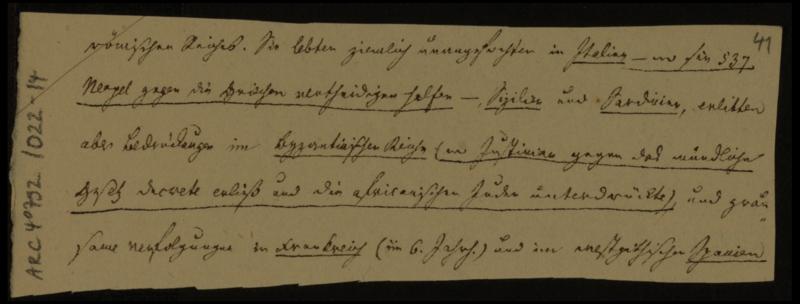 41
römischen Reiches. Sie lebten ziemlich unangefochten in Italien – wo sie 537
Neapel gegen die Griechen vertheidigen halfen –, Sizilien und Sardinien, erlitten
aber Bedrückungen im byzantinischen Reiche (wo Justinian gegen das mündliche
Gesetz Decrete erließ und die africanischen Juden unterdrückte), und grau-
same Verfolgungen in Frankreich (im 6. Jahrh.) und im westgothischen Spanien
ARC 4o792 /022-14